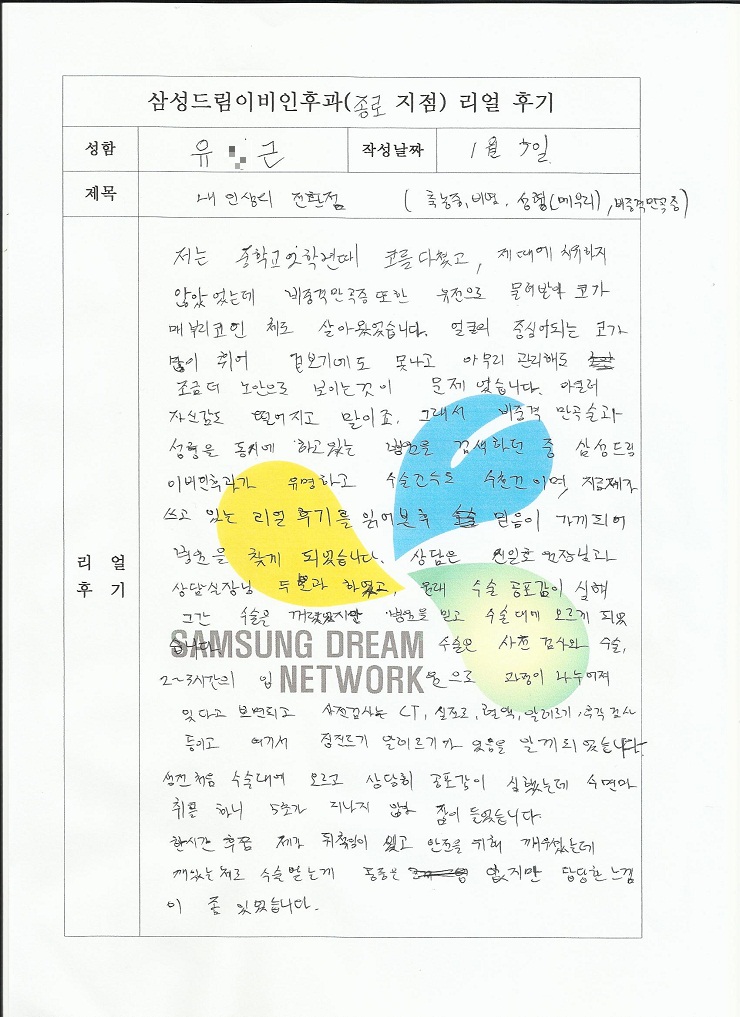 삼성드림이비인후과(종로 지점) 리얼 후기
성함 유 근 작성날짜 1월 5일
제목 내 인생의 전환점 (축농증, 비염, 성형(메부리), 비중격만곡증)
저는 중학교 2학년때 코를 다쳤고, 제때에 치유하지
않았었는데 비중격만곡증 또한 유전으로 물려받아 코가
매부리코인 채로 살아왔었습니다. 얼굴의 중심이되는 코가
많이 휘어 겉보기에도 못나고 아무리 관리해도
조금더 노안으로 보이는것이 문제였습니다. 아울러
자신감도 떨어지고 말이죠. 그래서 비중격 만곡술과
성형을 동시에 하고있는 병원을 검색하던 중 삼성드림
이비인후과가 유명하고 수술건수도 수천건이며, 치료제가
쓰고 있는 리얼 후기를 읽어본후 믿음이 가게되어
병원을 찾게 되었습니다. 상담은 원장님과
상담실장님 두분과 하였고, 원래 수술 공포감이 심해
그간 수술은 꺼렸었지만 병원을 믿고 수술대에 오르게 되었
습니다. 수술은 사전 검사와 수술,
2~3시간의 입원으로 과정이 나누어져
SAMSUNG DREAM
NETWORK
있다고 보면되고 사전검사는 CT, 심전도, 혈액, 알레르기, 후각 검사
등이고 여기서 집진드기 알레르기가 있음을 알게되었습니다.
생전 처음 수술대에 오르고 상당히 공포감이 심했는데 수면마
취를 하니 5초가 지나지 않아 잠이 들었습니다.
한시간 후쯤 제가 뒤척임이 있고 안전을 위해 깨우셨는데
깨있는채로 수술받는게 통증은 없지만 답답한 느낌
이 좀 있었습니다.
리 얼
후 기